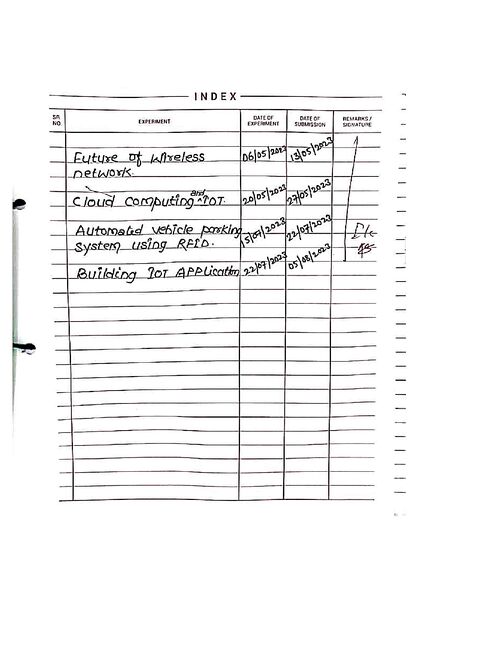 INDEX
SR. NO. EXPERIMENT DATE OF EXPERIMENT DATE OF SUBMISSION REMARKS / SIGNATURE
Future of Wireless 06/05/2023 13/05/2023
network.
Cloud Computing and IOT. 20/05/2023 27/05/2023
Automated vehicle parking 15/07/2023 22/07/2023
system using RFID.
Building IOT Application 22/07/2023 05/08/2023